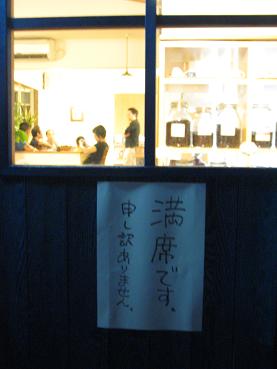 満席です。
申し訳ありません。